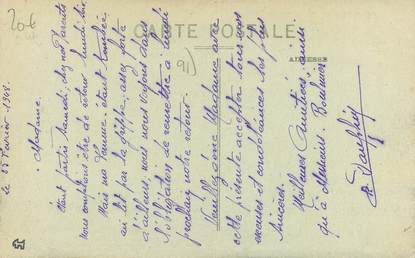 20€
CARTE POSTALE
ADRESSE
le 25 Février 1928.
Madame.
étant partis Samedi, chez nos Parents
nous comptions être de retour lundi soir
Mais ma femme, étant tombée
au lit par la grippe, assez forte
d'ailleurs, nous nous voyons dans
l'obligation de remettre à lundi
prochain notre retour.
Veuillez donc Madame avec
cette présente accepter tous nos
excuses et condoléances les plus
sincères.
Meilleures Amitiés ainsi
qu'à Messieurs